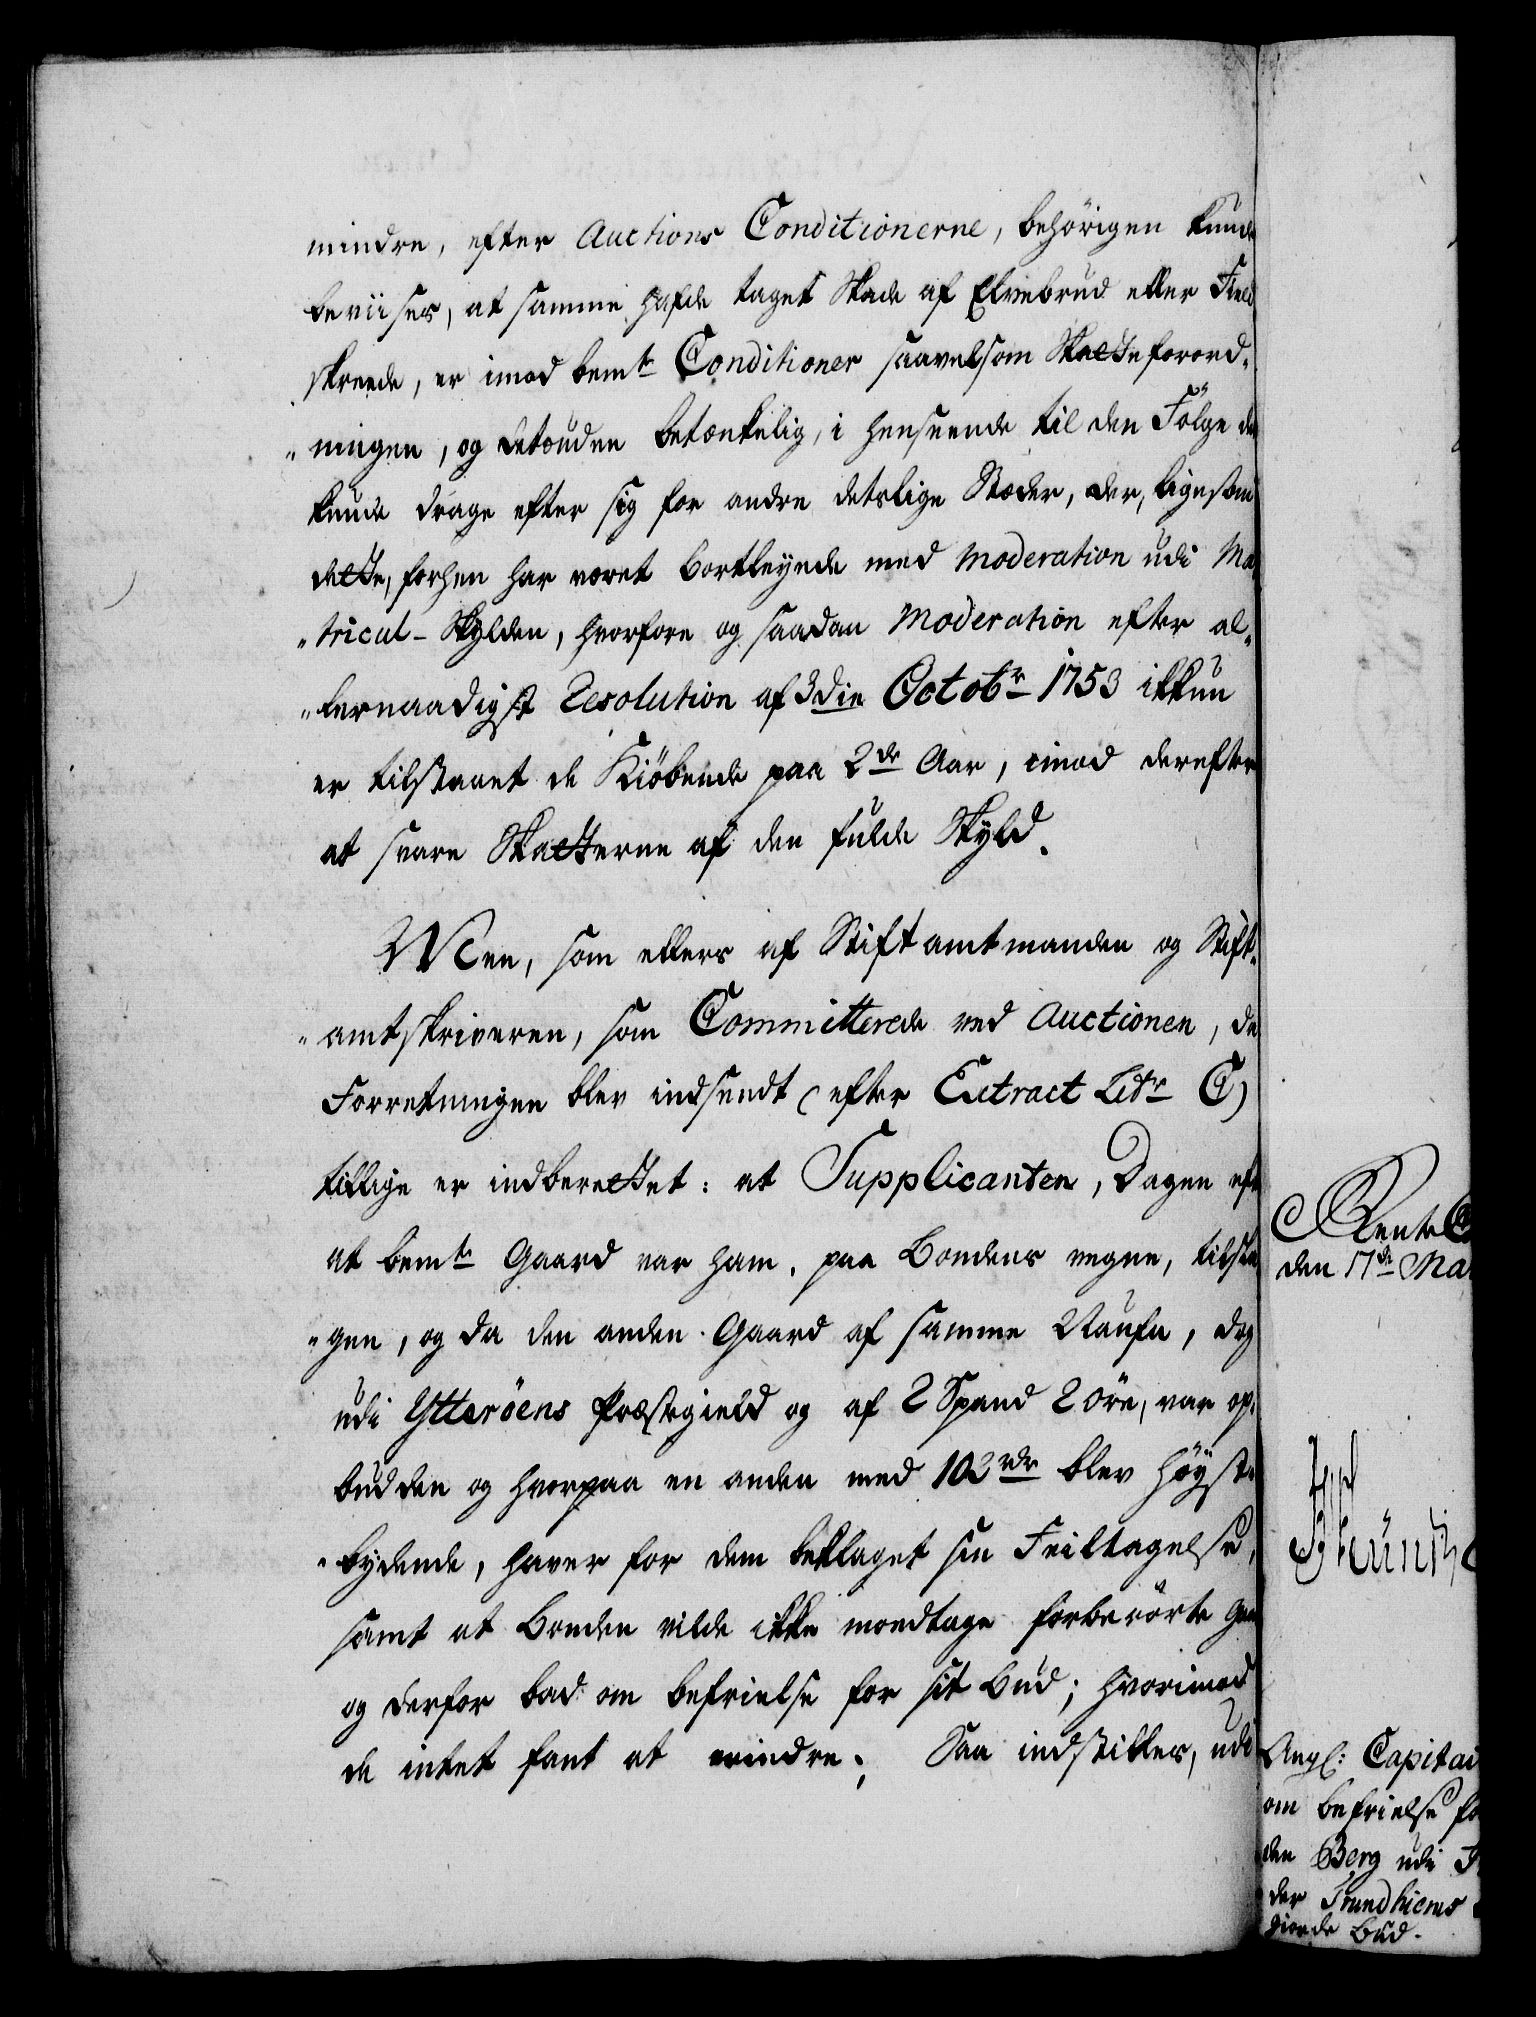 mindre, efter Auctions Conditionerne, behörigen kunde
beviises, at samme hafde taget Skade af Elvebrud eller Field
skreede, er imod bemte Conditioner saavelsom Skatteforord-
„ningen, og desuden betænkelig, i henseende til den Fölge det
kunde drage efter sig for andre deslige Stæder, der, ligesom
dette, forhen har været bortleyede med Moderation udi Ma
„tricul-Skylden, hvorfore og saadan Moderation efter al-
„lernaadigst Resolution af 3die Octobr 1753 ikkun
er tilstaaet de Kiöbende paa 2de Aar, imod derefter
at svare Skatterne af den fulde Skyld.
Men, som ellers af Stiftamtmanden og Stift-
„amtskriveren, som Committerede ved Auctionen, da
Forretningen blev indsendt (efter Extract Litr C)
tillige er indberettet: at Supplicanten, Dagen eft
at bemte Gaard var ham, paa Bondens vegne, tilsla
„gen, og da den anden Gaard af samme Naufn, dog
udi Ytteröens Præstegield og af 2 Spand 2 öre, var op-
budden og hvorpaa en anden med 102 rdr blev höyst-
„bydende, haver for dem beklaget sin Feiltagelse,
samt at Bonden vilde ikke modtage forberörte Gaa
og derfor bad om befrielse for sit Bud; hvorimod
de intet fant at erindre; Saa indstilles, udi
Rente C
den 17de Mar
Angl: Capitai
om befrielse fo
den Berg udi F
der Trundhiems
giorde Bud.